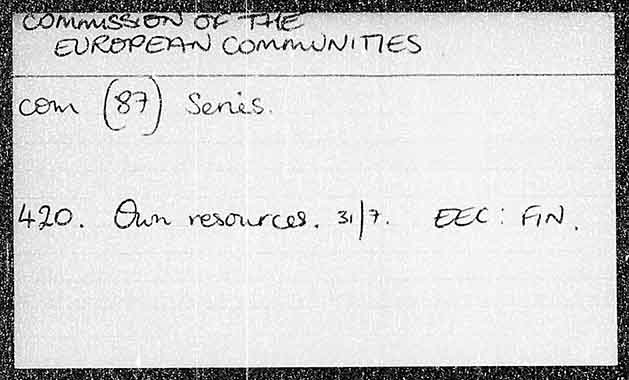 COMMISSION OF THE
EUROPEAN COMMUNITIES
com (87) Series.
420. Own resources. 31/7. EEC: FIN.